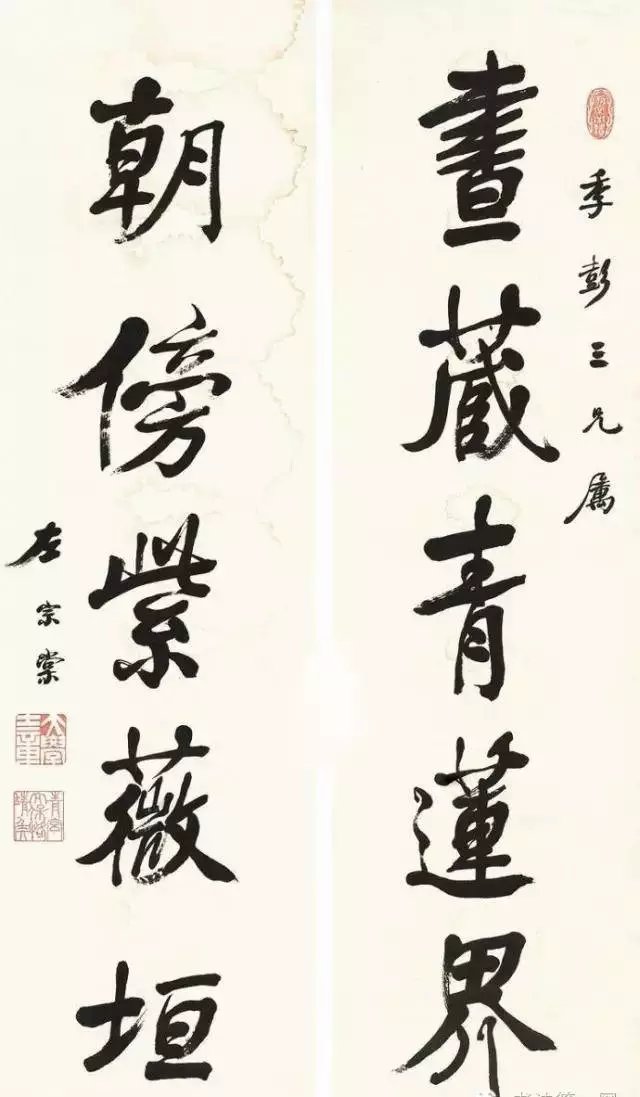 季彭三兄属
晝藏青蓮界
朝傍紫薇垣
左宗棠